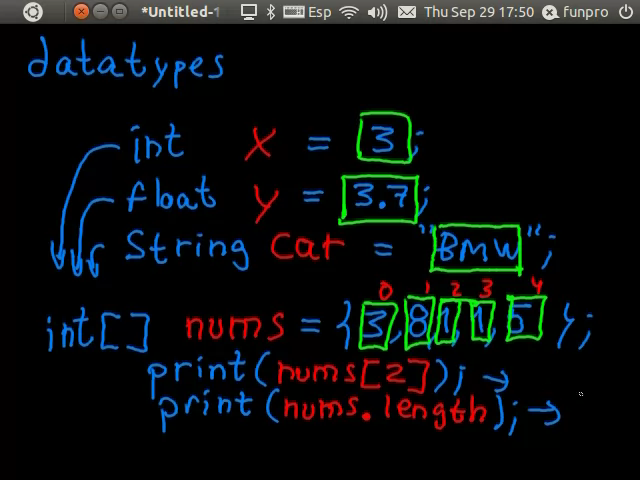 *Untitled-1 Esp Thu Sep 29 17:50 funpro
datatypes
int x = 3;
float y = 3.7;
String car = "BMW";
0 1 2 3 4
int[] nums = {3,8,1,1,5};
print(nums[2]); →
print(nums.length); →